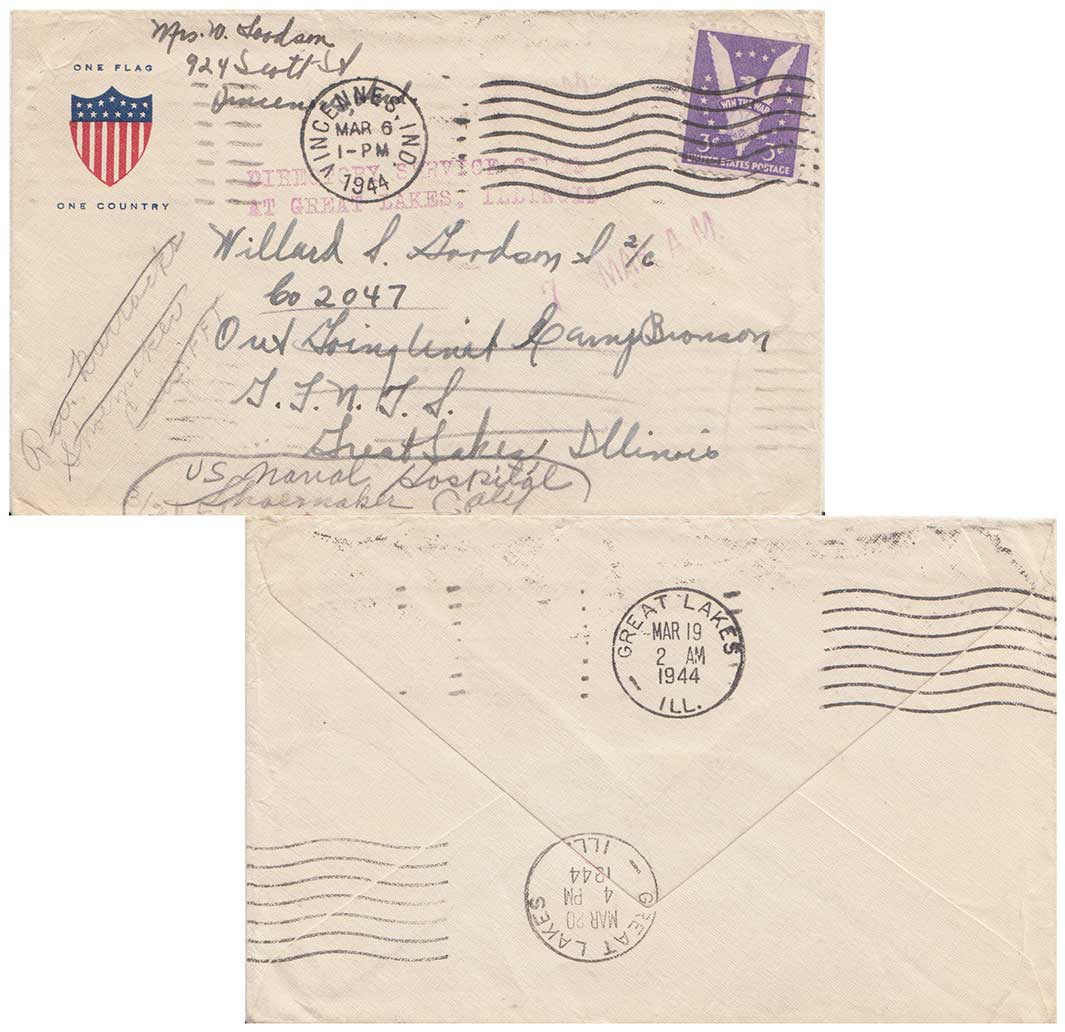 Mrs. W. Goodson
924 Scott St
ONE FLAG
ONE COUNTRY
VINCENNES, IND.
MAR 6
1-PM
1944
WIN THE WAR
3¢ 3¢
UNITED STATES POSTAGE
DIRECTORY SERVICE GIVEN
AT GREAT LAKES, ILLINOIS
7 MAR A.M.
Willard S. Goodson S 2/c
Co 2047
Out Going Unit Camp Bronson
Great Lakes, Illinois
Shoemaker
Calif
US Naval Hospital
Shoemaker Calif
GREAT LAKES
MAR 19
2 AM
1944
ILL.
GREAT LAKES
MAR 20
4 PM
1944
ILL.